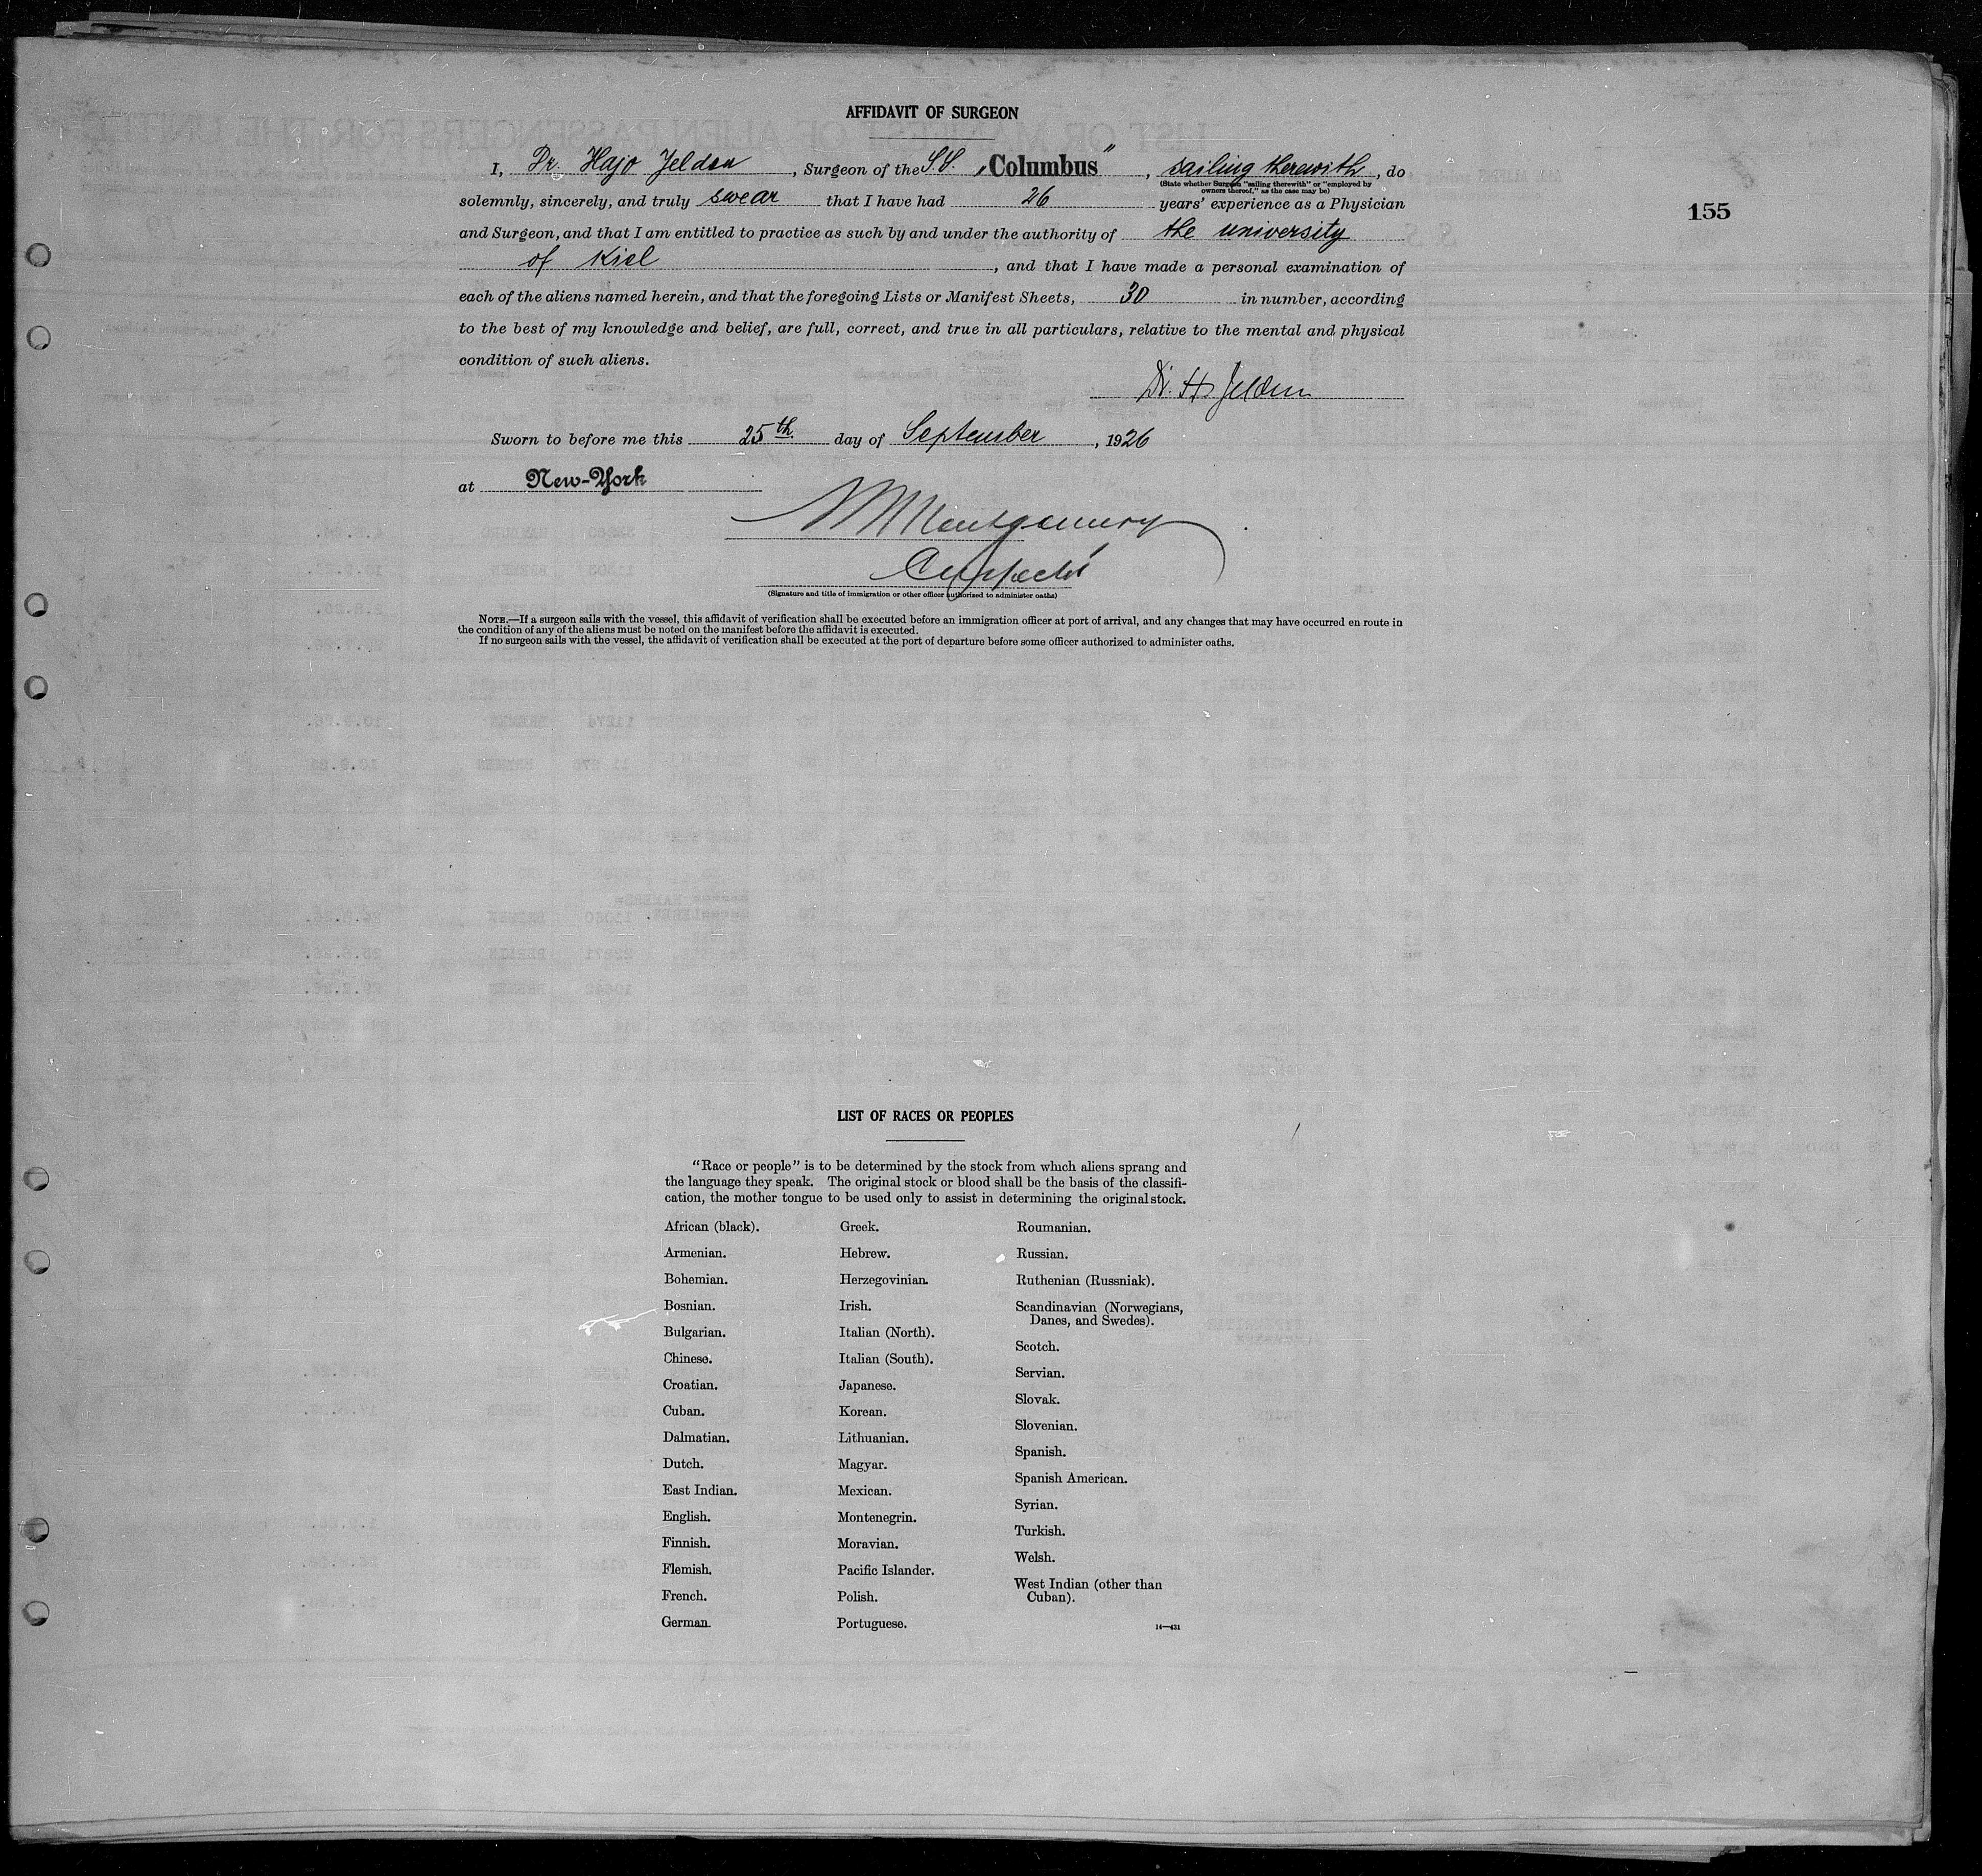 AFFIDAVIT OF SURGEON
I, Dr. Hajo Jelden, Surgeon of the S.S. „Columbus", sailing therewith, do
(State whether Surgeon "sailing therewith" or "employed by
owners thereof," as the case may be)
solemnly, sincerely, and truly swear that I have had 26 years' experience as a Physician
155
and Surgeon, and that I am entitled to practice as such by and under the authority of the university
of Kiel, and that I have made a personal examination of
each of the aliens named herein, and that the foregoing Lists or Manifest Sheets, 30 in number, according
to the best of my knowledge and belief, are full, correct, and true in all particulars, relative to the mental and physical
condition of such aliens.
Dr. H. Jelden
Sworn to before me this 25th. day of September, 1926
at New-York
Montgomery
(Signature and title of immigration or other officer authorized to administer oaths)
NOTE.—If a surgeon sails with the vessel, this affidavit of verification shall be executed before an immigration officer at port of arrival, and any changes that may have occurred en route in
the condition of any of the aliens must be noted on the manifest before the affidavit is executed.
If no surgeon sails with the vessel, the affidavit of verification shall be executed at the port of departure before some officer authorized to administer oaths.
LIST OF RACES OR PEOPLES
"Race or people" is to be determined by the stock from which aliens sprang and
the language they speak. The original stock or blood shall be the basis of the classifi-
cation, the mother tongue to be used only to assist in determining the original stock.
African (black).
Armenian.
Bohemian.
Bosnian.
Bulgarian.
Chinese.
Croatian.
Cuban.
Dalmatian.
Dutch.
East Indian.
English.
Finnish.
Flemish.
French.
German.
Greek.
Hebrew.
Herzegovinian.
Irish.
Italian (North).
Italian (South).
Japanese.
Korean.
Lithuanian.
Magyar.
Mexican.
Montenegrin.
Moravian.
Pacific Islander.
Polish.
Portuguese.
Roumanian.
Russian.
Ruthenian (Russniak).
Scandinavian (Norwegians,
Danes, and Swedes).
Scotch.
Servian.
Slovak.
Slovenian.
Spanish.
Spanish American.
Syrian.
Turkish.
Welsh.
West Indian (other than
Cuban).
14—431